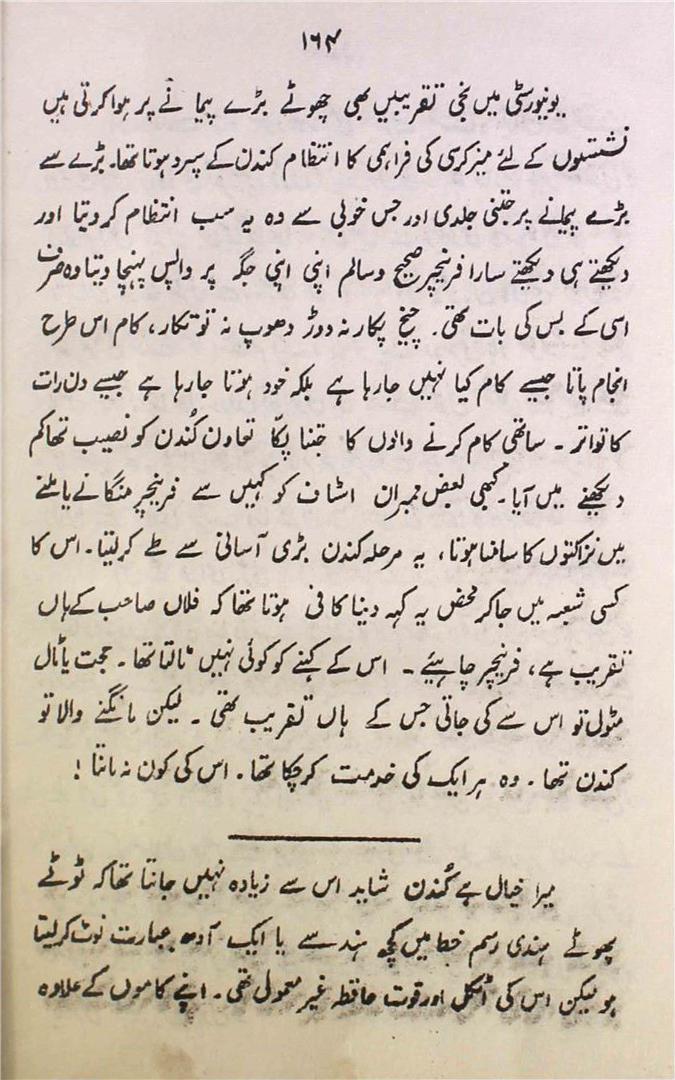 ۱۶۴
یونیورسٹی میں نجی تقریبیں بھی چھوٹے بڑے پیمانے پر ہوا کرتی ہیں
نشستوں کے لئے میز کرسی کی فراہمی کا انتظام کندن کے سپرد ہوتا تھا۔ بڑے سے
بڑے پیمانے پر جتنی جلدی اور جس خوبی سے وہ یہ سب انتظام کر دیتا اور
دیکھتے ہی دیکھتے سارا فرنیچر صحیح و سالم اپنی اپنی جگہ پر واپس پہنچا دیتا وہ صرف
اسی کے بس کی بات تھی۔ چیخ پکار نہ دوڑ دھوپ نہ تو تکار، کام اس طرح
انجام پاتا جیسے کام کیا نہیں جا رہا ہے بلکہ خود ہوتا جا رہا ہے جیسے دن رات
کا تواتر ۔ ساتھی کام کرنے والوں کا جتنا پکّا تعاون کُندن کو نصیب تھا کم
دیکھنے میں آیا۔ کبھی بعض ممبران اسٹاف کو کہیں سے فرنیچر منگانے یا ملنے
میں نزاکتوں کا سامنا ہوتا، یہ مرحلہ کندن بڑی آسانی سے طے کر لیتا۔ اس کا
کسی شعبہ میں جا کر محض یہ کہہ دینا کافی ہوتا تھا کہ فلاں صاحب کے ہاں
تقریب ہے، فرنیچر چاہیئے ۔ اس کے کہنے کو کوئی نہیں ٹالتا تھا۔ حجت یا ٹال
مٹول تو اس سے کی جاتی جس کے ہاں تقریب تھی ۔ لیکن مانگنے والا تو
کندن تھا ۔ وہ ہر ایک کی خدمت کر چکا تھا۔ اس کی کون نہ مانتا !
میرا خیال ہے کُندن شاید اس سے زیادہ نہیں جانتا تھا کہ ٹوٹے
پھوٹے ہندی رسم خط میں کچھ ہندسے یا ایک آدھ عبارت نوٹ کر لیتا
ہو لیکن اس کی اٹکل اور قوت حافظہ غیر معمولی تھی۔ اپنے کاموں کے علاوہ